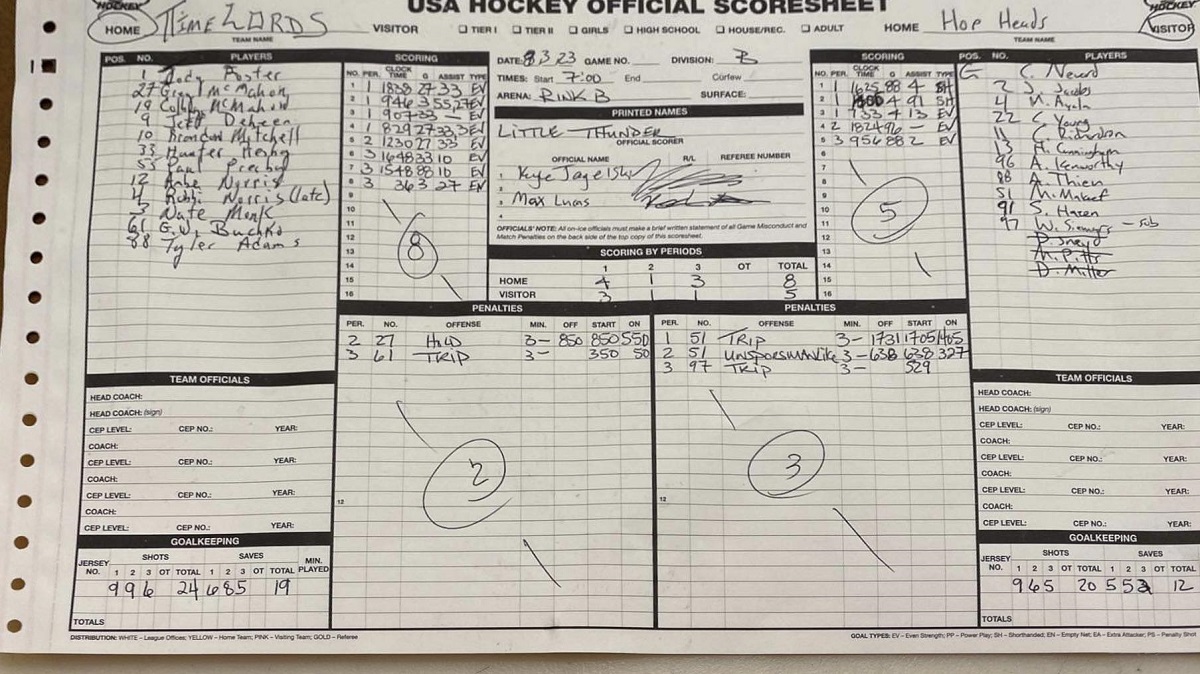 USA HOCKEY OFFICIAL SCORESHEET
HOCKEY
HOME
TIME LORDS
TEAM NAME
VISITOR ☐ TIER I ☐ TIER II ☐ GIRLS ☐ HIGH SCHOOL ☐ HOUSE/REC. ☐ ADULT HOME
Hop Heads
TEAM NAME
HOCKEY
VISITOR
POS. NO. PLAYERS
1 Rody Foster
27 McMahon
19 Colby McMahon
9 Jeff Deheen
10 Brandon Mitchell
33 Hunter
53 Paul
12 Norris
4 Robbi Norris (late)
3 Nate Monk
61 G.W. Buchko
88 Tyler Adams
SCORING
NO. PER. CLOCK TIME G ASSIST TYPE
1 1 1838 27 33 EV
2 1 946 3 55,27 EV
3 1 907 33 — EV
4 1 829 27 33,3 EV
5 2 1230 27 33 EV
6 3 1648 33 10 EV
7 3 1548 88 10 EV
8 3 36 3 27 EV
9
10
11
12
13
14
15
16
8
DATE: 8.3.23 GAME NO. DIVISION: B
TIMES: Start 7:00 End Curfew
ARENA: RINK B SURFACE:
PRINTED NAMES
LITTLE THUNDER
OFFICIAL SCORER
OFFICIAL NAME R/L REFEREE NUMBER
1. Kyle Jagelski
2.
3. Max Lucas
4.
OFFICIALS' NOTE: All on-ice officials must make a brief written statement of all Game Misconduct and
Match Penalties on the back side of the top copy of this scoresheet.
SCORING BY PERIODS
1 2 3 OT TOTAL
HOME 4 1 3 8
VISITOR 3 1 1 5
SCORING
NO. PER. CLOCK TIME G ASSIST TYPE
1 1 1625 88 4 SH
2 1 4 91 SH
3 1 733 4 13 EV
4 2 1824 96 — EV
5 3 956 88 2 EV
6
7
8
9
10
11
12
13
14
15
16
5
POS. NO. PLAYERS
G C. Nevard
2 J. Jacobs
4 N. Ayala
22 C Young
11 C Richardson
13 M. Cunningham
96 A. Kenworthy
88 A. Thien
51 M. Makeef
91 S. Hazen
97 W. Siemers — sub
P. Sneyd
M. Pitts
D. Miller
PENALTIES
PER. NO. OFFENSE MIN. OFF START ON
2 27 HOLD 3— 850 850 550
3 61 TRIP 3— 350 50
12
2
PENALTIES
PER. NO. OFFENSE MIN. OFF START ON
1 51 TRIP 3— 1731 1705 1405
2 51 UNSPORSMANlike 3— 638 638 327
3 97 TRIP 3— 529
12
3
TEAM OFFICIALS
HEAD COACH:
HEAD COACH: (sign)
CEP LEVEL: CEP NO.: YEAR:
COACH:
CEP LEVEL: CEP NO.: YEAR:
COACH:
CEP LEVEL: CEP NO.: YEAR:
COACH:
CEP LEVEL: CEP NO.: YEAR:
GOALKEEPING
SHOTS SAVES
JERSEY NO. 1 2 3 OT TOTAL 1 2 3 OT TOTAL MIN. PLAYED
9 9 6 24 6 8 5 19
TOTALS
TEAM OFFICIALS
HEAD COACH:
HEAD COACH: (sign)
CEP LEVEL: CEP NO.: YEAR:
COACH:
CEP LEVEL: CEP NO.: YEAR:
COACH:
CEP LEVEL: CEP NO.: YEAR:
COACH:
CEP LEVEL: CEP NO.: YEAR:
GOALKEEPING
SHOTS SAVES
JERSEY NO. 1 2 3 OT TOTAL 1 2 3 OT TOTAL
9 6 5 20 5 5 2 12
TOTALS
DISTRIBUTION: WHITE – League Offices; YELLOW – Home Team; PINK – Visiting Team; GOLD – Referee
GOAL TYPES: EV – Even Strength; PP – Power Play; SH – Shorthanded; EN – Empty Net; EA – Extra Attacker; PS – Penalty Shot